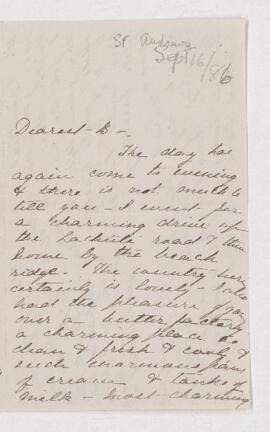 St Andrews
Sept 16/86
Dearest - B -.
The day has
again come to evening
& there is not much to
tell you - I went for
a charming drive up
the Lachute road & then
home by the beach
ridge. The country here
certainly is lovely - I also
had the pleasure of going
over a butter factory
a charming place so
clean & fresh & cool &
such enormous pans
of cream & tanks of
milk - most charming